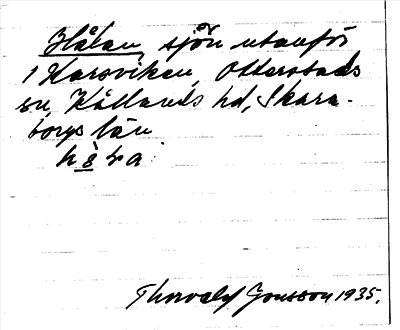 Hålan, sjön utanför
1 Karsviken, Otterstads
sn, Kållands hd, Skara-
borgs län.
Thorvald Jonsson 1935.